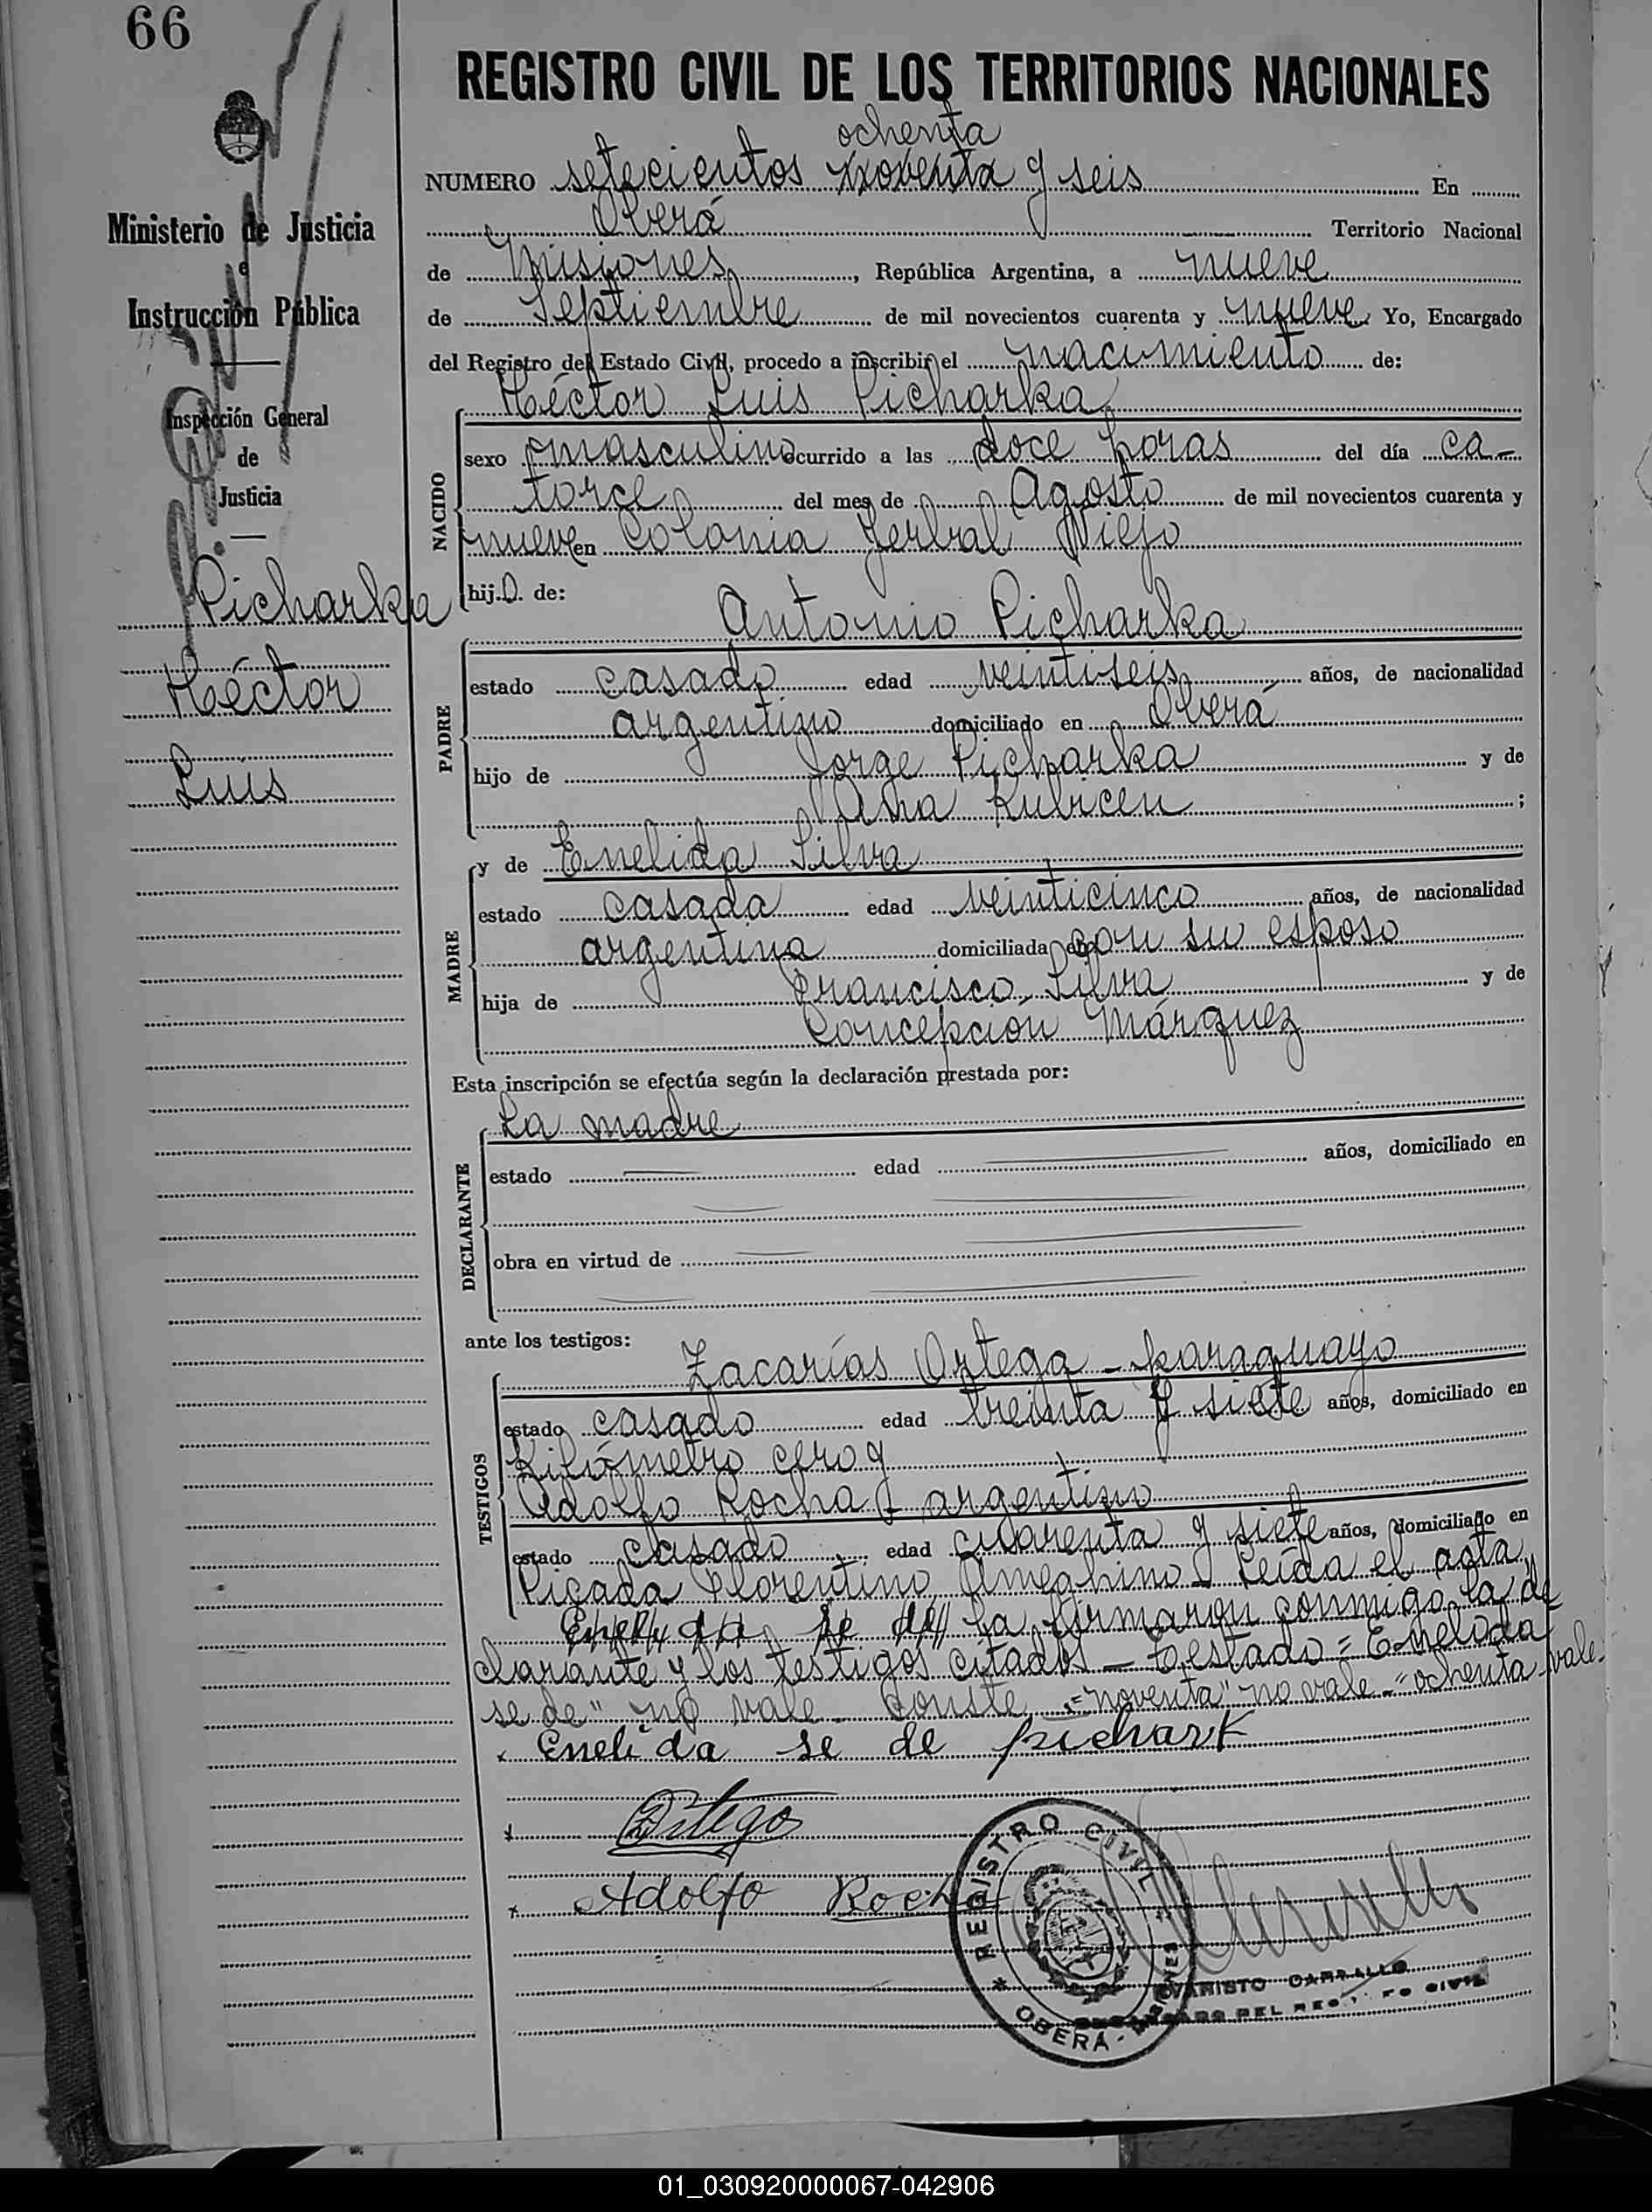 66
REGISTRO CIVIL DE LOS TERRITORIOS NACIONALES
ochenta
NUMERO setecientos noventa y seis En
Oberá Territorio Nacional
de Misiones, República Argentina, a nueve
de Septiembre de mil novecientos cuarenta y nueve Yo, Encargado
del Registro del Estado Civil, procedo a inscribir el nacimiento de:
Héctor Luis Picharka
NACIDO
sexo masculino ocurrido a las doce horas del día ca-
torce del mes de Agosto de mil novecientos cuarenta y
nueve en Colonia Yerbal Viejo
hij.o. de:
Antonio Picharka
PADRE
estado casado edad veintiseis años, de nacionalidad
argentino domiciliado en Oberá
hijo de Jorge Picharka y de
Ana Kubicen;
MADRE
y de Enelida Silva
estado casada edad veinticinco años, de nacionalidad
argentina domiciliada con su esposo
hija de Francisco Silva y de
Concepcion Márquez
Esta inscripción se efectúa según la declaración prestada por:
La madre
DECLARANTE
estado edad años, domiciliado en
obra en virtud de
ante los testigos:
Zacarías Ortega - paraguayo
TESTIGOS
estado casado edad treinta y siete años, domiciliado en
Kilómetro cero y
Adolfo Rocha - argentino
estado casado edad cuarenta y siete años, domiciliado en
Picada Florentino Ameghino - Leída el acta,
Enelida se de la firmaron conmigo la de
clarante y los testigos citados - Testado = Enelida
se de" no vale - Conste = "noventa" no vale - "ochenta vale -
x Enelida se de pichark
x Ortega
x Adolfo Rocha
REGISTRO CIVIL
OBERÁ - MISIONES
EVARISTO CARBALLO
ENCARGADO DEL REGISTRO CIVIL
Ministerio de Justicia
e
Instrucción Pública
Inspección General
de
Justicia
Picharka
Héctor
Luis
01_030920000067-042906